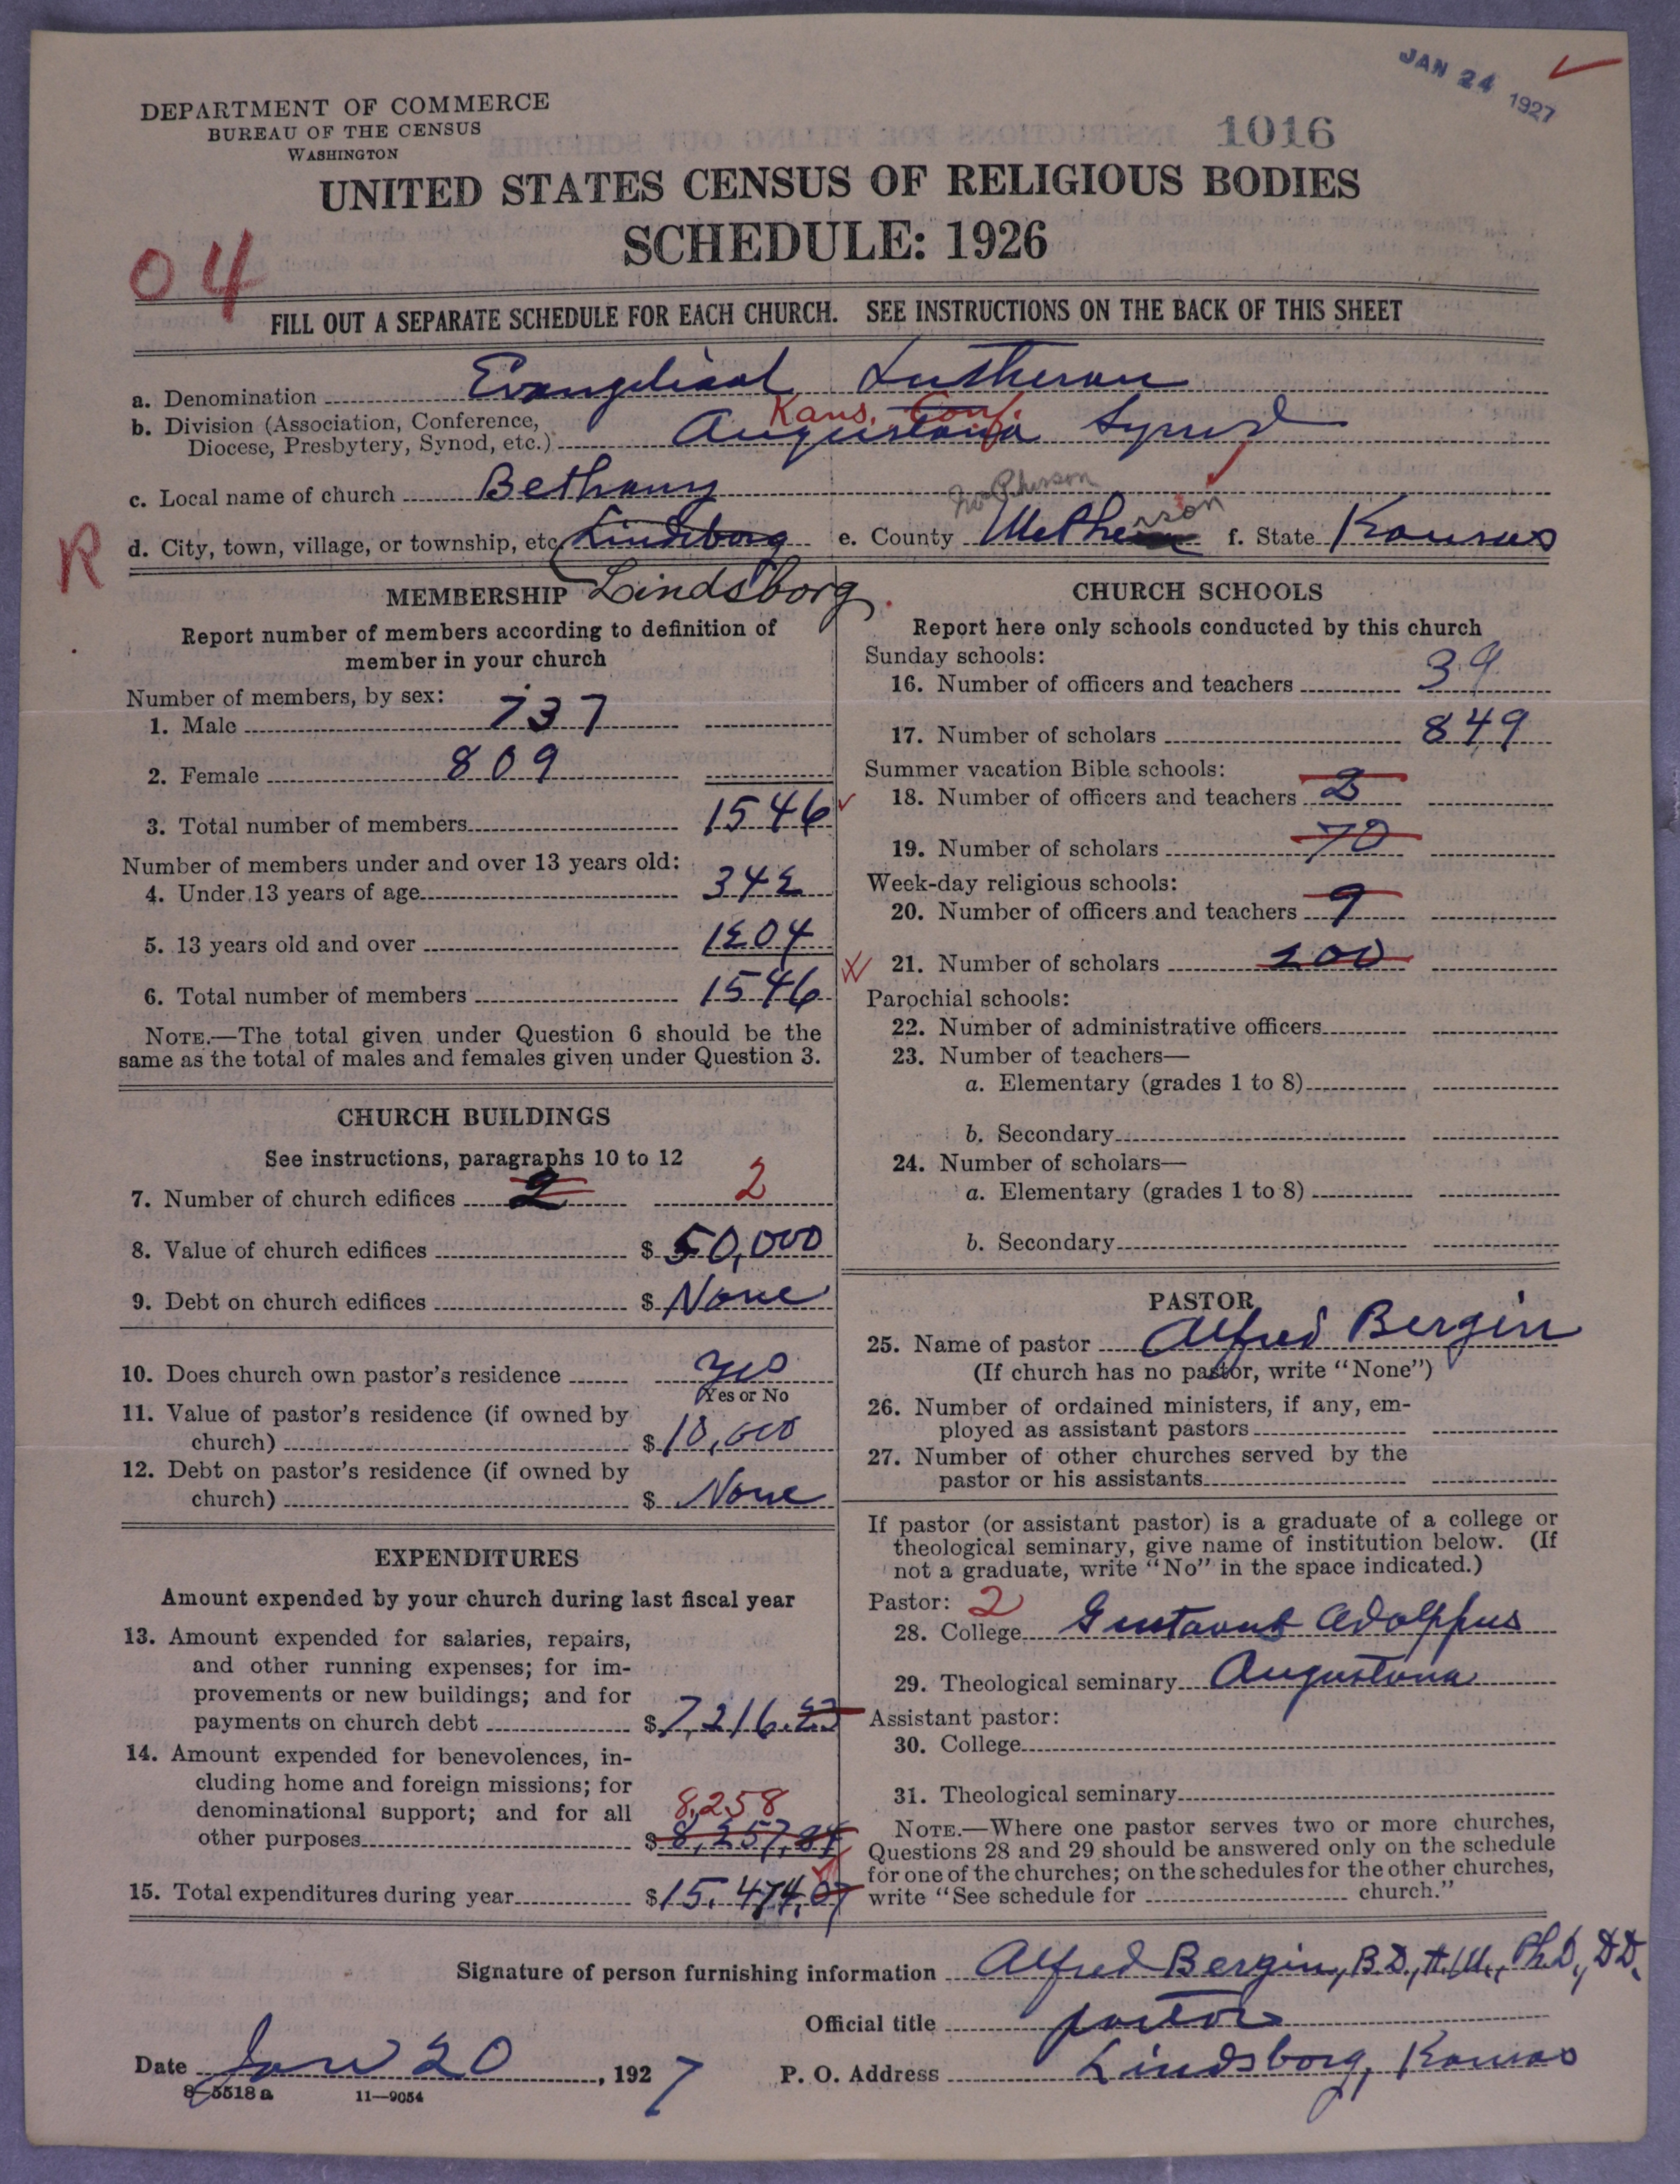 JAN 24 1927
DEPARTMENT OF COMMERCE
BUREAU OF THE CENSUS
WASHINGTON
1016
UNITED STATES CENSUS OF RELIGIOUS BODIES
SCHEDULE: 1926
04
FILL OUT A SEPARATE SCHEDULE FOR EACH CHURCH. SEE INSTRUCTIONS ON THE BACK OF THIS SHEET
a. Denomination Evangelical Lutheran
Kans. Conf.
b. Division (Association, Conference,
Diocese, Presbytery, Synod, etc.) Augustana Synod
c. Local name of church Bethany
R
d. City, town, village, or township, etc. Lindsborg e. County f. State Kansas
Lindsborg
MEMBERSHIP
Report number of members according to definition of
member in your church
Number of members, by sex:
1. Male 737
2. Female 809
3. Total number of members 1546
Number of members under and over 13 years old:
4. Under 13 years of age 342
5. 13 years old and over 1204
6. Total number of members 1546
NOTE.—The total given under Question 6 should be the
same as the total of males and females given under Question 3.
CHURCH BUILDINGS
See instructions, paragraphs 10 to 12
7. Number of church edifices 2 2
8. Value of church edifices $ 50,000
9. Debt on church edifices $ None
10. Does church own pastor's residence yes
Yes or No
11. Value of pastor's residence (if owned by
church) $ 10,000
12. Debt on pastor's residence (if owned by
church) $ None
EXPENDITURES
Amount expended by your church during last fiscal year
13. Amount expended for salaries, repairs,
and other running expenses; for im-
provements or new buildings; and for
payments on church debt $ 7,216.23
14. Amount expended for benevolences, in-
cluding home and foreign missions; for
denominational support; and for all
8,258
other purposes $ 8,257,84
15. Total expenditures during year $ 15,474,07
CHURCH SCHOOLS
Report here only schools conducted by this church
Sunday schools:
16. Number of officers and teachers 39
17. Number of scholars 849
Summer vacation Bible schools:
18. Number of officers and teachers
19. Number of scholars 70
Week-day religious schools:
20. Number of officers and teachers 9
21. Number of scholars 200
Parochial schools:
22. Number of administrative officers
23. Number of teachers—
a. Elementary (grades 1 to 8)
b. Secondary
24. Number of scholars—
a. Elementary (grades 1 to 8)
b. Secondary
PASTOR
25. Name of pastor Alfred Bergin
(If church has no pastor, write "None")
26. Number of ordained ministers, if any, em-
ployed as assistant pastors
27. Number of other churches served by the
pastor or his assistants
If pastor (or assistant pastor) is a graduate of a college or
theological seminary, give name of institution below. (If
not a graduate, write "No" in the space indicated.)
Pastor: 2
28. College Gustavus Adolphus
29. Theological seminary Augustana
Assistant pastor:
30. College
31. Theological seminary
NOTE.—Where one pastor serves two or more churches,
Questions 28 and 29 should be answered only on the schedule
for one of the churches; on the schedules for the other churches,
write "See schedule for church."
Signature of person furnishing information Alfred Bergin, B.D., A.M., Ph.D., D.D.
Official title pastor
Date Jan 20, 1927 P. O. Address Lindsborg, Kansas
8-5518 a 11—9054